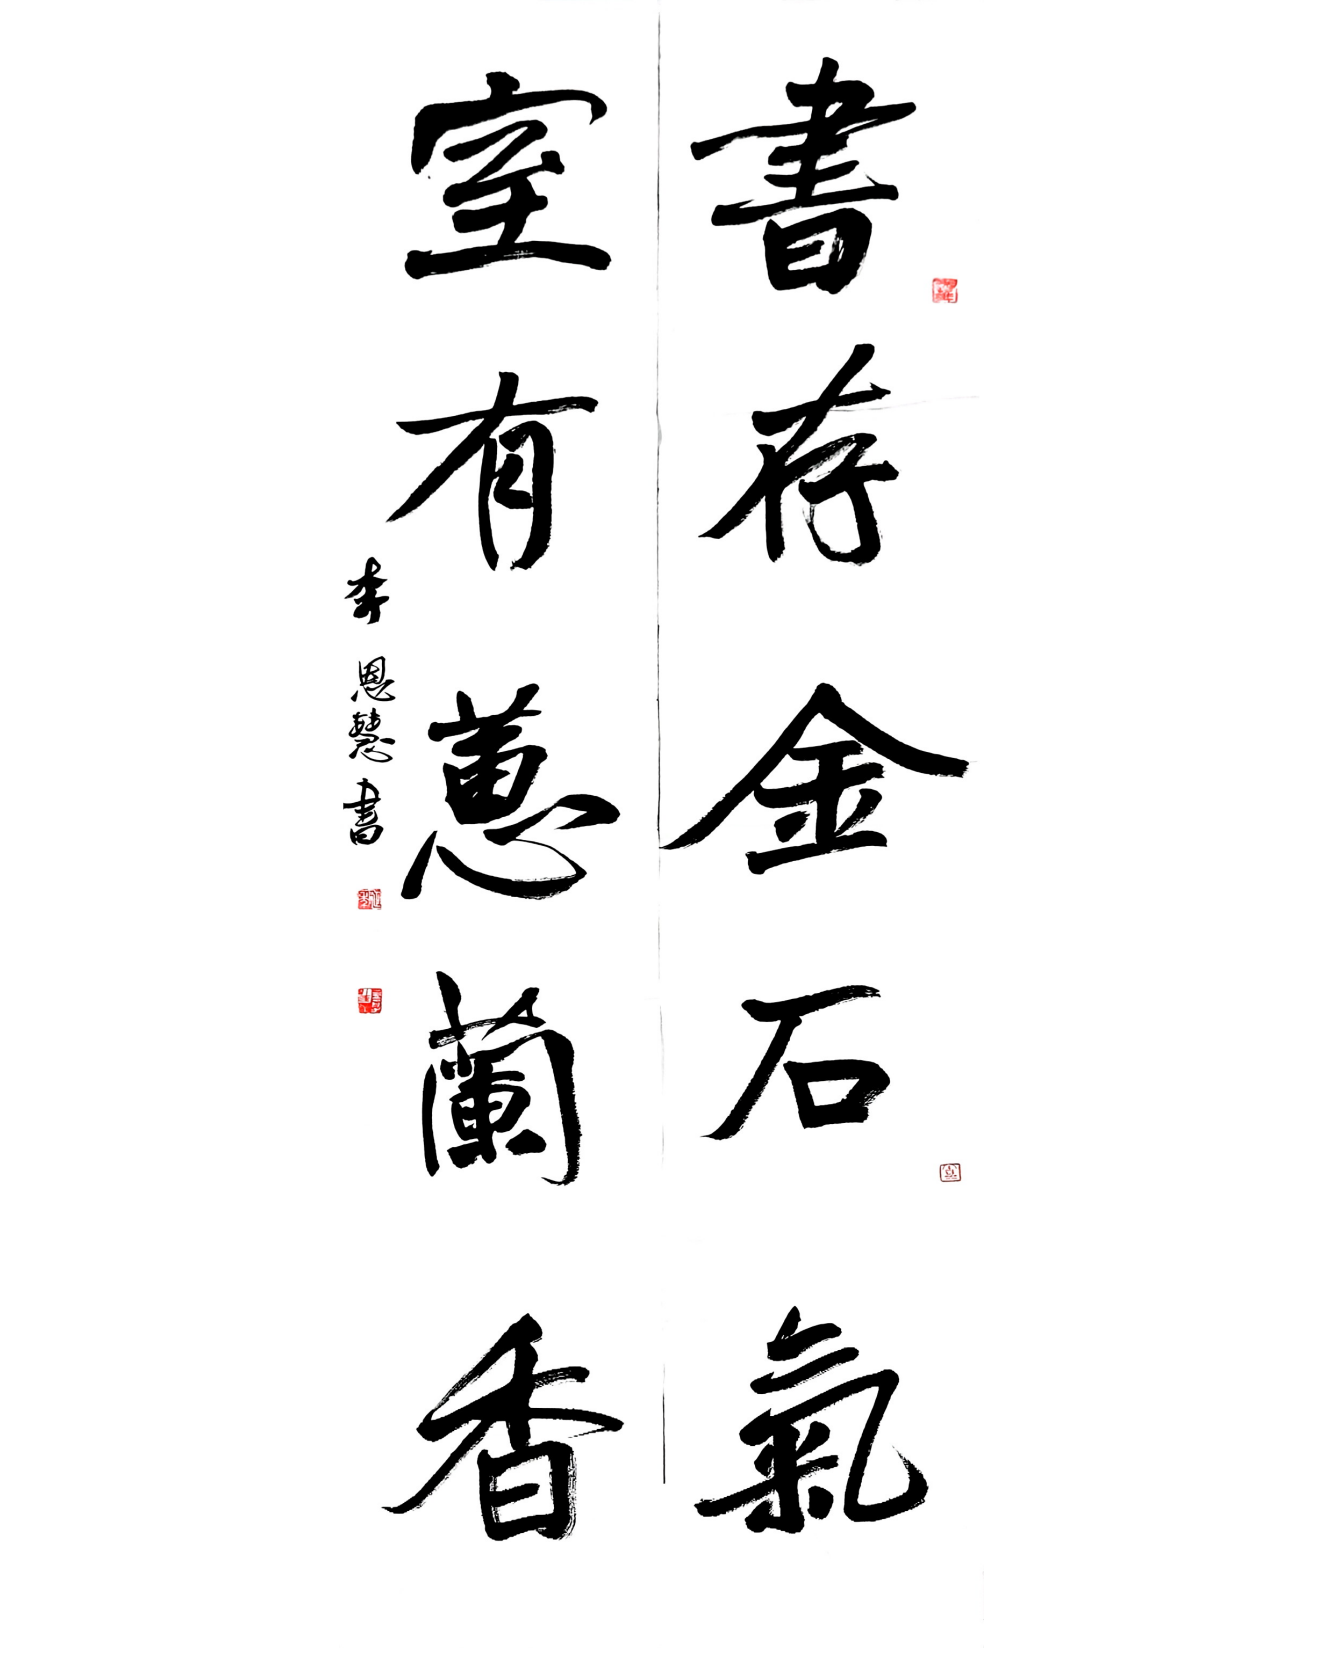 書存金石氣
室有蕙蘭香
李恩慧書